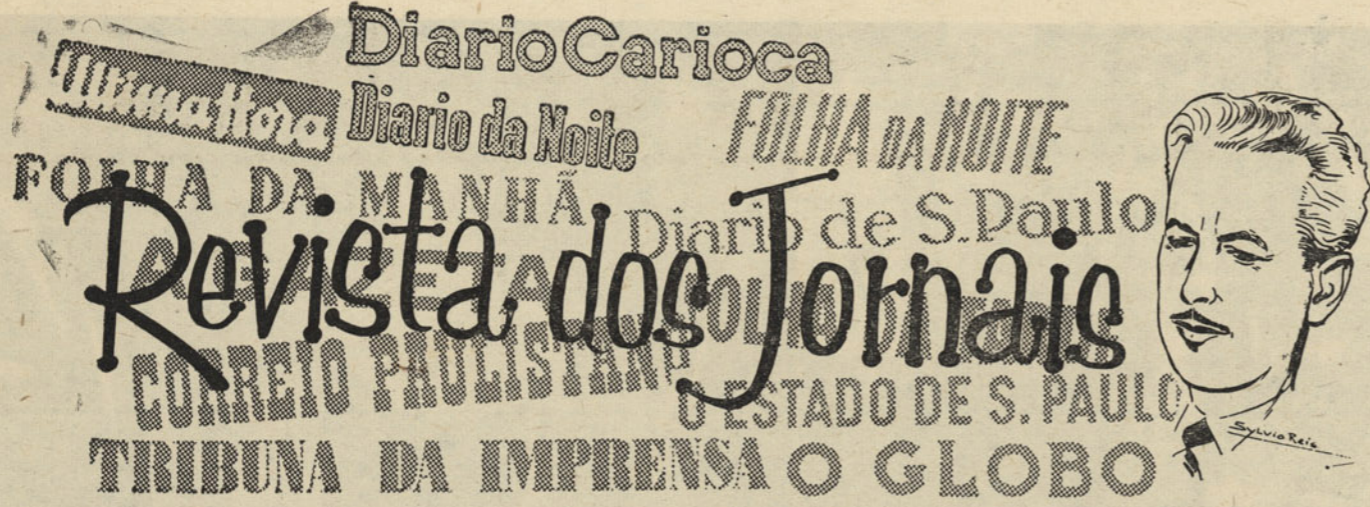 Diario Carioca
Ultima Hora
Diario da Noite
FOLHA DA NOITE
FOLHA DA MANHÃ
Diario de S. Paulo
A GAZETA
Revista dos Jornais
FOLHA DA
CORREIO PAULISTANO
O ESTADO DE S. PAULO
SYLVIO REIS
TRIBUNA DA IMPRENSA
O GLOBO